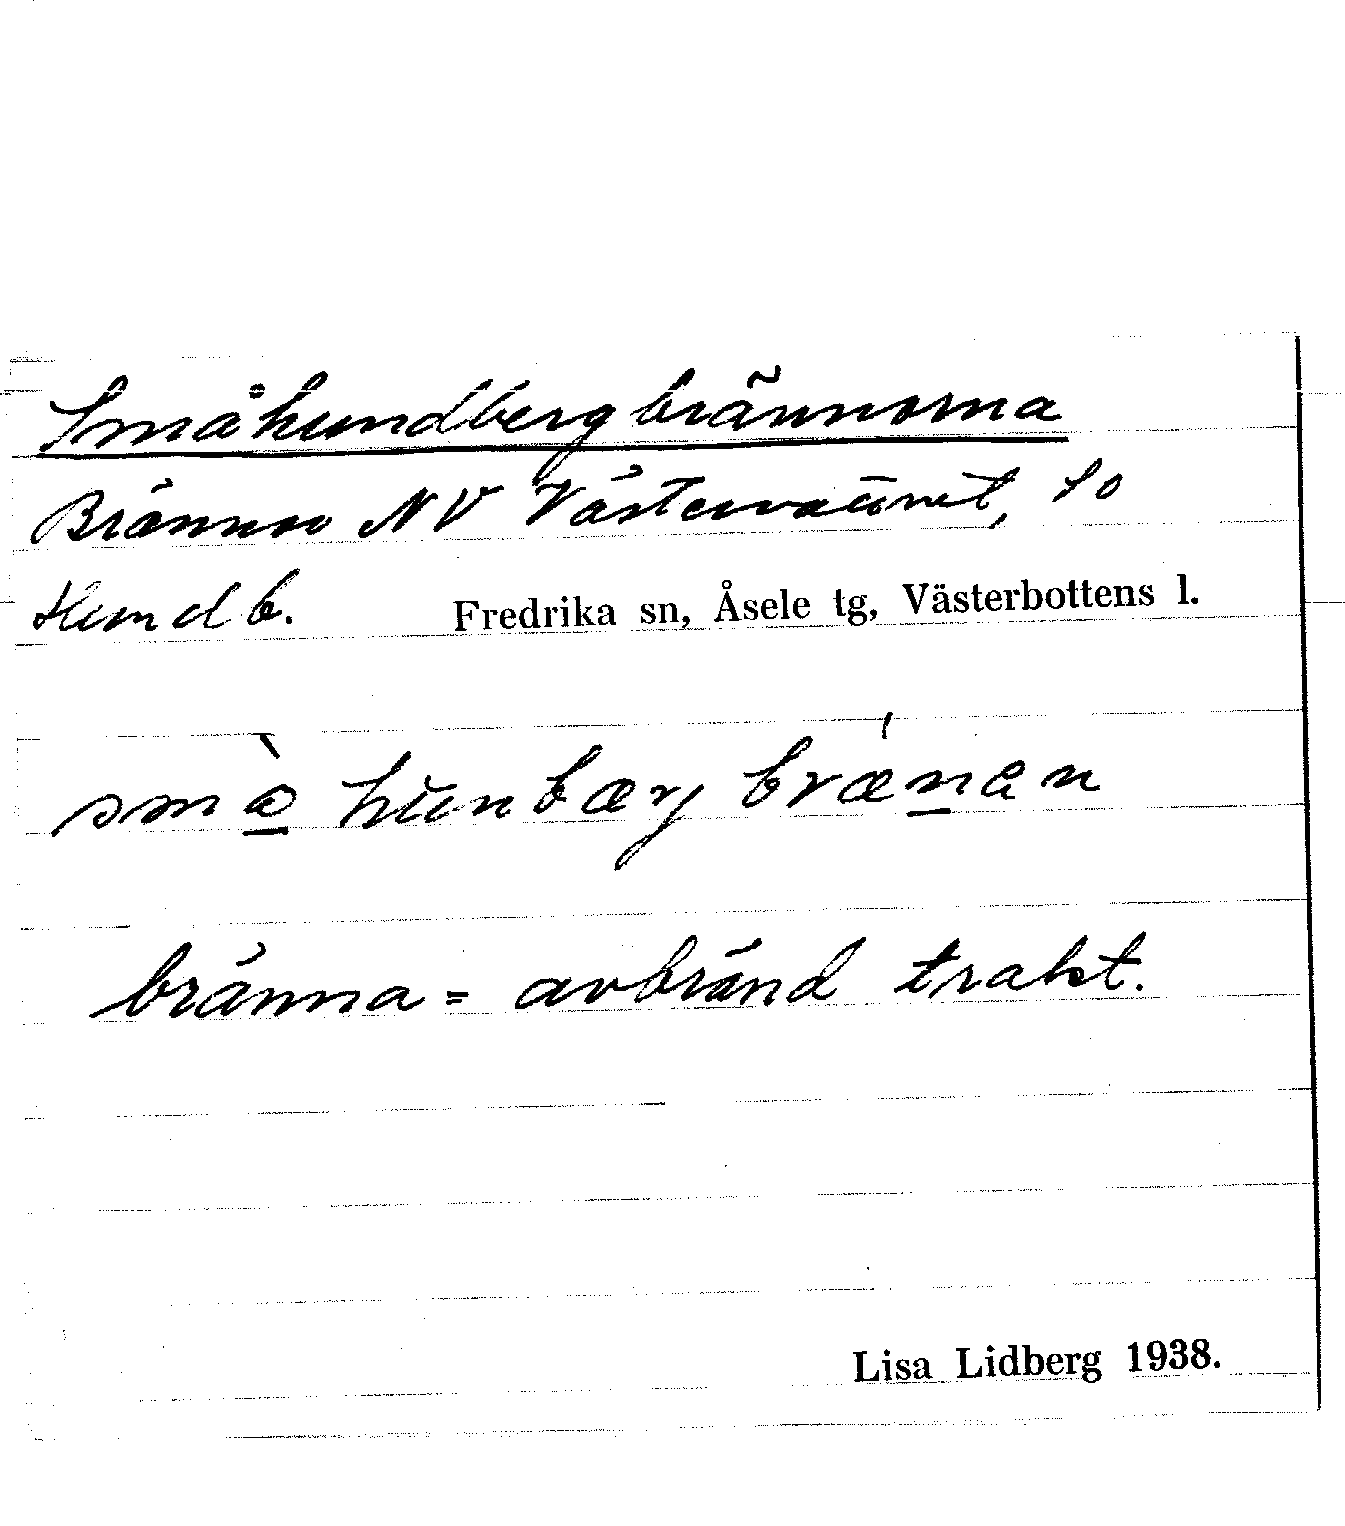 Småhundbergbrännorna
Brännor NV Västervattnet, SO
Hundb. Fredrika sn, Åsele tg, Västerbottens l.
bränna = avbränd trakt.
Lisa Lidberg 1938.